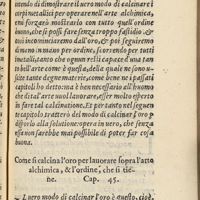 tendo di dimostrare il uero modo di calcinar i
corpi metallici per operare nell'arte alchimica,
mi sforzarò mostrarlo con tutto quell'ordine
buono, che si posſa fare senza troppo fastidio, &
noi incominciamo dall'oro, & poi seguiremo
di mano in mano per ordine, scorrendo per tutti
metalli, tanto che ogniun resti capace d'una tan
ta bell'arte come è questa, della quale ne sono
cosi ce degna materie, come bene ne i pasſati
capitoli ho dimostrato, & essendo che à chi del
l'arte uuol lauorare, gl'è molto espresso
di saper far tal calcinatione. Et per tanto nel seguen
te capitolo tratterò del modo di calcinar l'oro p
disporlo alla solutione opera in uero, che senza
essa non sarebbe mai possibile di poter far cosa
buona.
Come si calcina l'oro per lauorare sopra l'arte
alchimica, & l'ordine, che si tie-
ne. Cap. 45.
L uero modo di calcinar l'oro è questo, cioè,